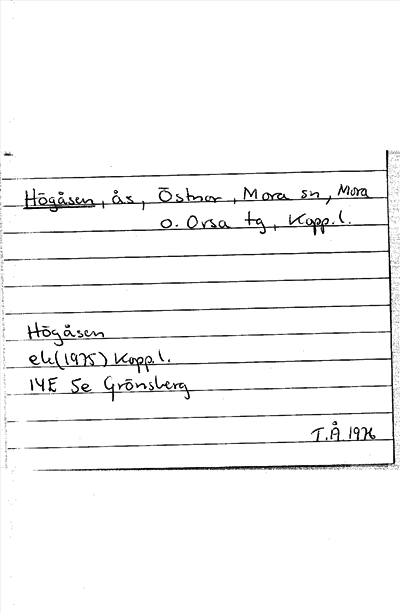 Högåsen, ås, Östnor, Mora sn, Mora
o. Orsa tg, Kopp.l.
Högåsen
ek(1975) Kopp.l.
14E 5e Grönsberg
T.Å. 1976